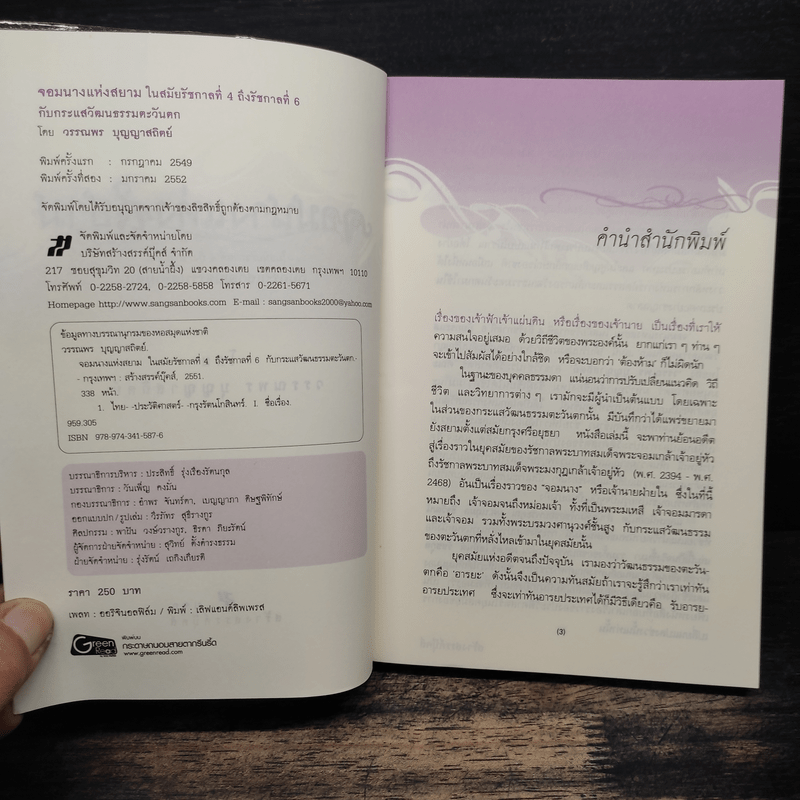 จอมนางแห่งสยาม ในสมัยรัชกาลที่ 4 ถึงรัชกาลที่ 6
กับกระแสวัฒนธรรมตะวันตก
โดย วรรณพร บุญญาสถิตย์
พิมพ์ครั้งแรก : กรกฎาคม 2549
พิมพ์ครั้งที่สอง : มกราคม 2552
จัดพิมพ์โดยได้รับอนุญาตจากเจ้าของลิขสิทธิ์ถูกต้องตามกฎหมาย
จัดพิมพ์และจัดจำหน่ายโดย
บริษัทสร้างสรรค์บุ๊คส์ จำกัด
217 ซอยสุขุมวิท 20 (สายน้ำผึ้ง) แขวงคลองเตย เขตคลองเตย กรุงเทพฯ 10110
โทรศัพท์ 0-2258-2724, 0-2258-5858 โทรสาร 0-2261-5671
Homepage http://www.sangsanbooks.com E-mail : sangsanbooks2000@yahoo.com
ข้อมูลทางบรรณานุกรมของหอสมุดแห่งชาติ
วรรณพร บุญญาสถิตย์.
จอมนางแห่งสยาม ในสมัยรัชกาลที่ 4 ถึงรัชกาลที่ 6 กับกระแสวัฒนธรรมตะวันตก.-
- กรุงเทพฯ : สร้างสรรค์บุ๊คส์, 2551.
338 หน้า.
1. ไทย- -ประวัติศาสตร์- -กรุงรัตนโกสินทร์. I. ชื่อเรื่อง.
959.305
ISBN 978-974-341-587-6
บรรณาธิการบริหาร : ประสิทธิ์ รุ่งเรืองรัตนกุล
บรรณาธิการ : วันเพ็ญ คงมั่น
กองบรรณาธิการ : อำพร จันทร์คา, เบญญาภา ดิษฐพิทักษ์
ออกแบบปก/รูปเล่ม : วิรภัทร สุธีรางกูร
ศิลปกรรม : พานิน วงษ์วรางกูร, ธีรดา ภิยะรัตน์
ผู้จัดการฝ่ายจัดจำหน่าย : สุวิทย์ ตั้งดำรงธรรม
ฝ่ายจัดจำหน่าย : รุ่งรัตน์ เถกิงเกียรติ
ราคา 250 บาท
เพลท : ออริจินอลฟิล์ม / พิมพ์ : เลิฟแอนด์ลิพเพรส
Green Read
พิมพ์บน
กระดาษถนอมสายตากรีนรี้ด
www.greenread.com
คำนำสำนักพิมพ์
เรื่องของเจ้าฟ้าเจ้าแผ่นดิน หรือเรื่องของเจ้านาย เป็นเรื่องที่เราให้
ความสนใจอยู่เสมอ ด้วยวิถีชีวิตของพระองค์นั้น ยากแก่เรา ๆ ท่าน ๆ
จะเข้าไปสัมผัสได้อย่างใกล้ชิด หรือจะบอกว่า 'ต้องห้าม' ก็ไม่ผิดนัก
ในฐานะของบุคคลธรรมดา แน่นอนว่าการปรับเปลี่ยนแนวคิด วิถี
ชีวิต และวิทยาการต่าง ๆ เรามักจะมีผู้นำเป็นต้นแบบ โดยเฉพาะ
ในส่วนของกระแสวัฒนธรรมตะวันตกนั้น มีบันทึกว่าได้แพร่ขยายมา
ยังสยามตั้งแต่สมัยกรุงศรีอยุธยา หนังสือเล่มนี้ จะพาท่านย้อนอดีต
สู่เรื่องราวในยุคสมัยของรัชกาลพระบาทสมเด็จพระจอมเกล้าเจ้าอยู่หัว
ถึงรัชกาลพระบาทสมเด็จพระมงกุฎเกล้าเจ้าอยู่หัว (พ.ศ. 2394 - พ.ศ.
2468) อันเป็นเรื่องราวของ "จอมนาง" หรือเจ้านายฝ่ายใน ซึ่งในที่นี้
หมายถึง เจ้าจอมจนถึงหม่อมเจ้า ทั้งที่เป็นพระมเหสี เจ้าจอมมารดา
และเจ้าจอม รวมทั้งพระบรมวงศานุวงศ์ชั้นสูง กับกระแสวัฒนธรรม
ของตะวันตกที่หลั่งไหลเข้ามาในยุคสมัยนั้น
ยุคสมัยแห่งอดีตจนถึงปัจจุบัน เรามองว่าวัฒนธรรมของตะวัน-
ตกคือ 'อารยะ' ดังนั้นจึงเป็นความทันสมัยถ้าเราจะรู้สึกว่าเราเท่าทัน
อารยประเทศ ซึ่งจะเท่าทันอารยประเทศได้ก็มีวิธีเดียวคือ รับอารย-
(3)